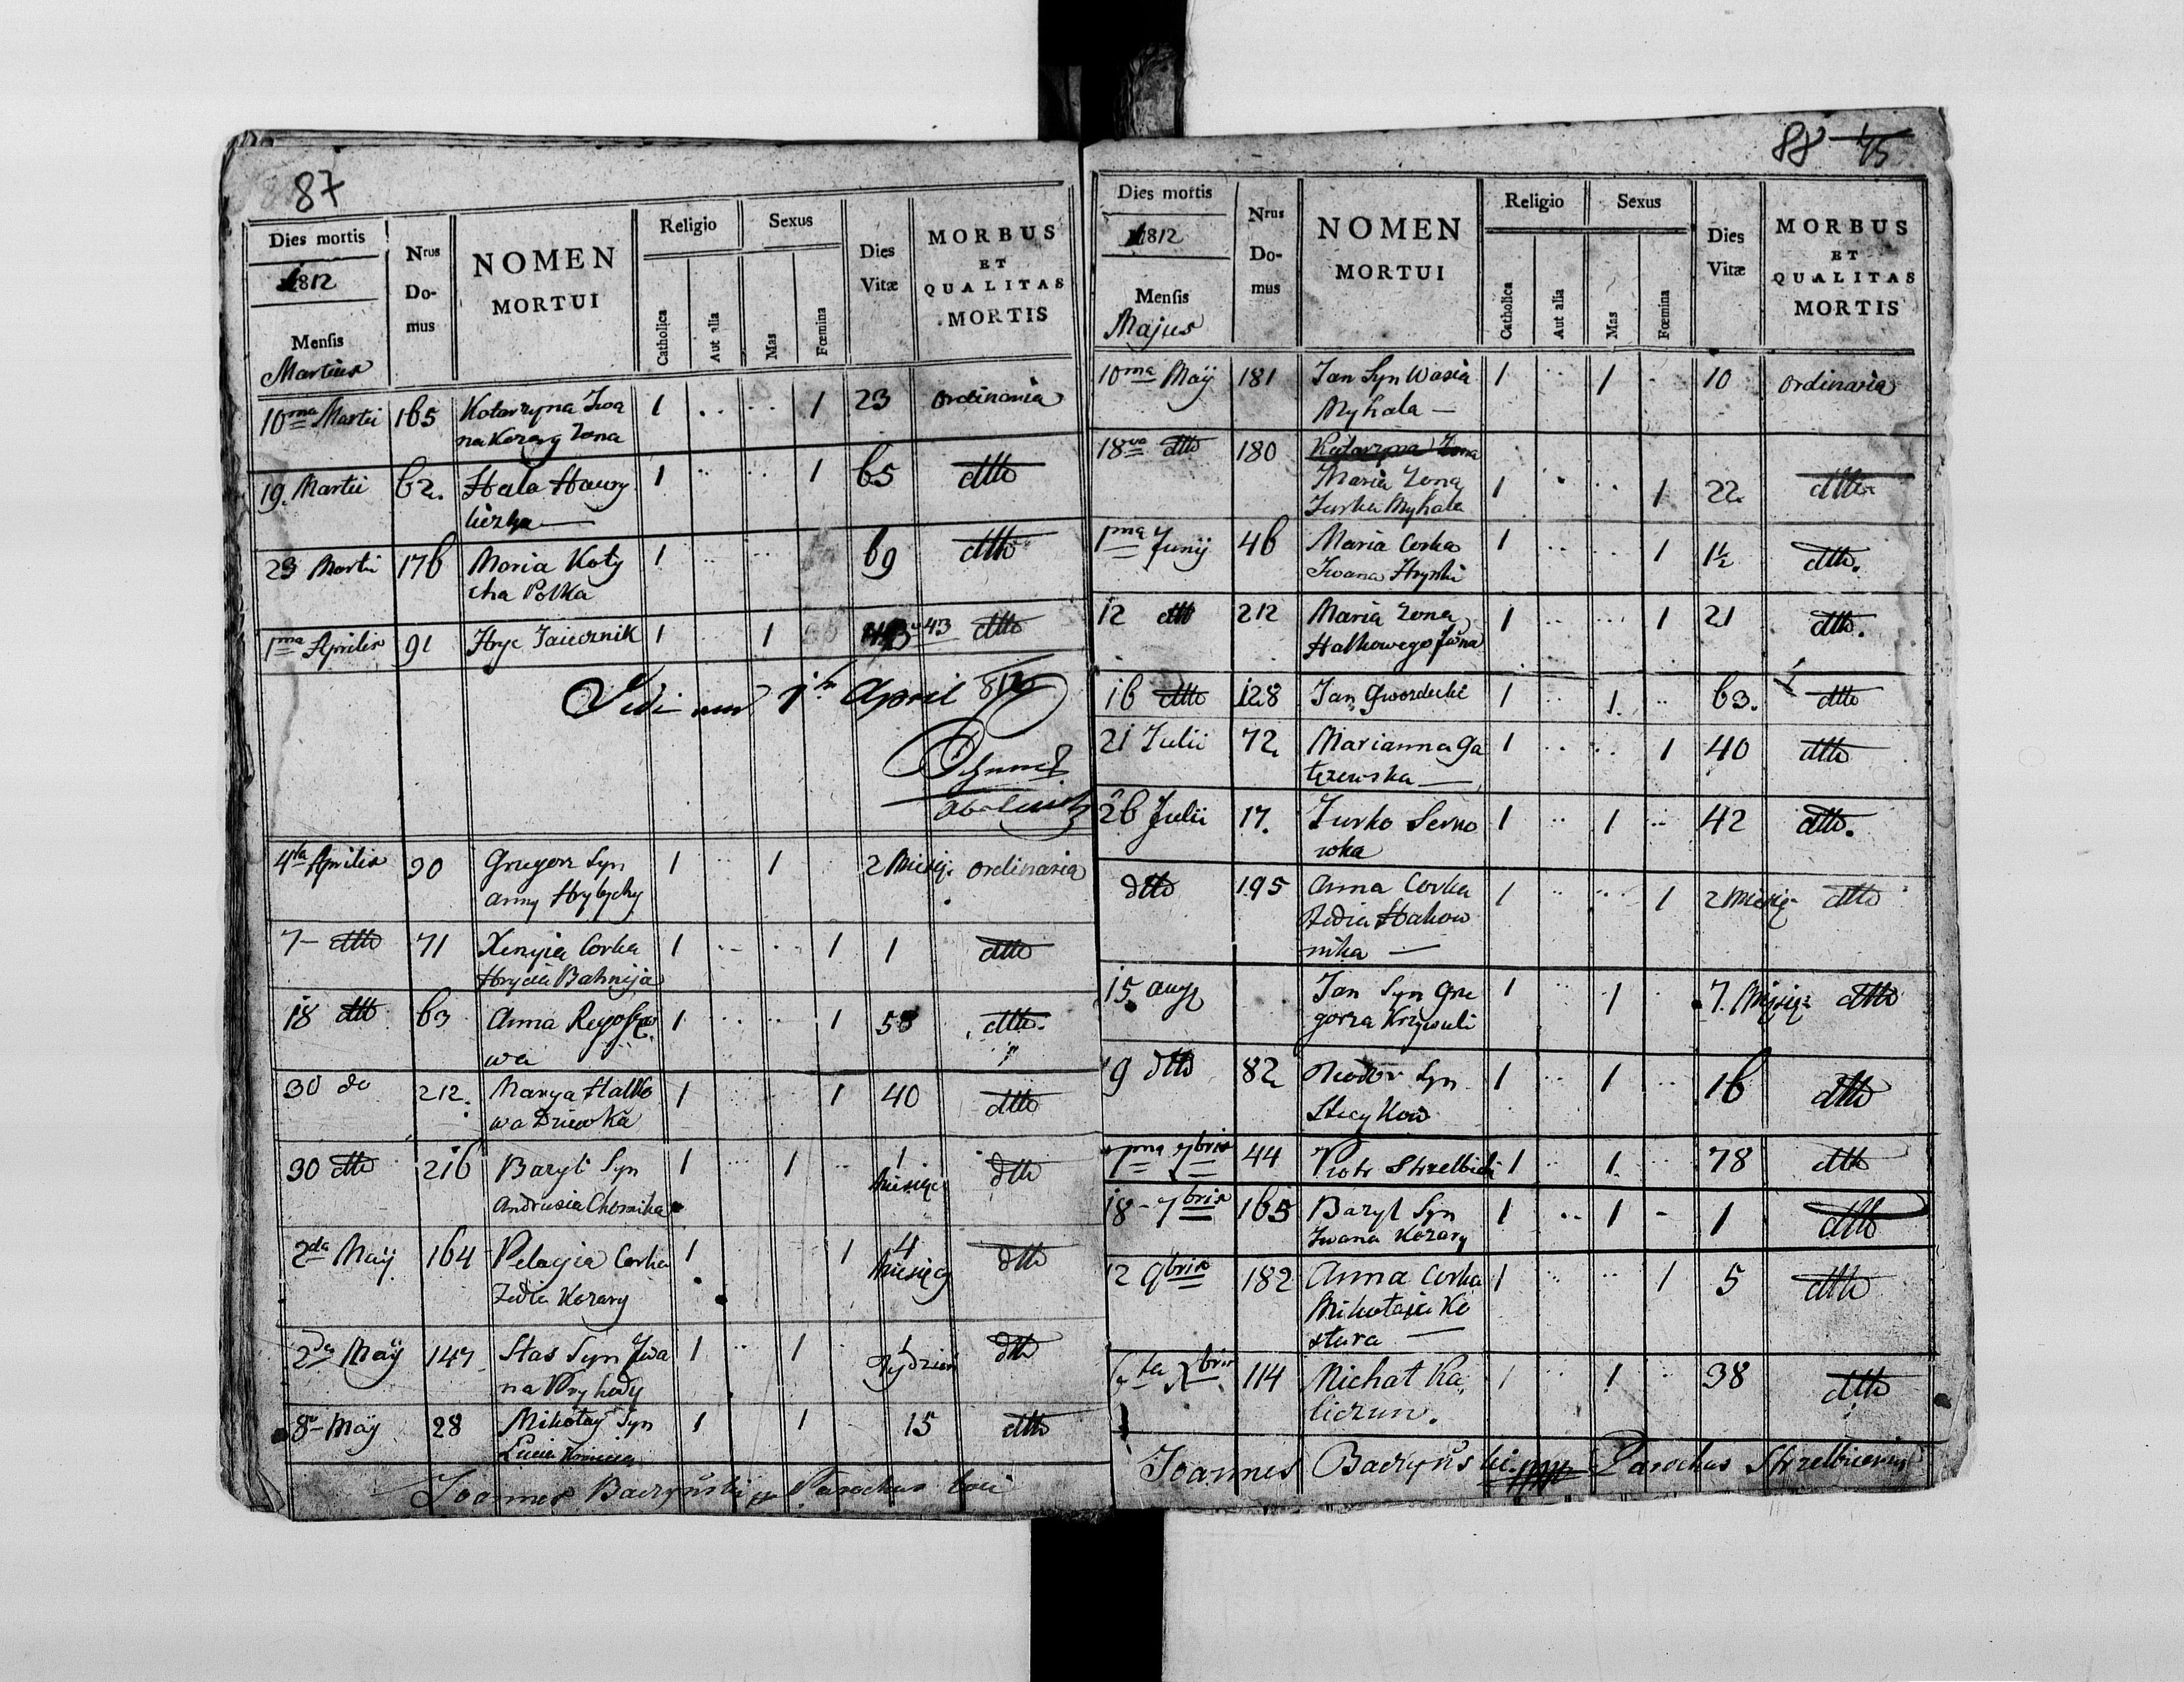 87
Dies mortis
1812
Mensis
Martius
Nrus
Do-
mus
NOMEN
MORTUI
Religio
Catholica
Aut alia
Sexus
Mas
Fœmina
Dies
Vitæ
MORBUS
ET
QUALITAS
MORTIS
10ma Martii 165 Katarzyna Iwa 1 .. .. 1 23 ordinaria
na Kozary Zona
19. Martii 62. Hala Hawry 1 .. .. 1 65 dtto
liczka —
23 Martii 176 Maria Koty 1 .. .. 69 dtto
cha Polka
1ma Aprilis 91 Hryc Jaiecznik 1 .. 1 43 dtto
Vidi 1 April 812
4ta Aprilis 90 Gregorz Syn 1 1 2 Miesię. ordinaria
anny Hrybychy
7 – dtto 71 Xenyia Corka 1 .. .. 1 1 dtto
Hrycia Bahnija
18 dtto 63 Anna 1 .. .. 1 58 dtto.
wa
30 do 212. Marya Halko 1 1 40 dtto
wa Dziewka
30 dtto 216 Bazyli Syn 1 .. 1 .. 1 dtto
Andrusia Chomika miesięc
2da Maij 164 Pelagia Corka 1 1 4 dtto
Fedia Kozary miesięcy
2da Maij 147 Stas Syn Iwa 1 1 1 dtto
na Pryhody Tydzień
8 – Maij 28 Mikołay Syn 1 1 15 dtto
Joannes Baczyński Parochus loci
88 75
Dies mortis
1812
Mensis
Majus
Nrus
Do-
mus
NOMEN
MORTUI
Religio
Catholica
Aut alia
Sexus
Mas
Fœmina
Dies
Vitæ
MORBUS
ET
QUALITAS
MORTIS
10ma Maij 181 Jan Syn Wasia 1 .. 1 .. 10 ordinaria
Myhala —
18va dtto 180 Katarzyna Zona
Maria Zona 1 . .. 1 22 dtto
Jurka Myhala
1ma Junij 46 Maria Corka 1 .. .. 1 1½ dtto.
Iwana Hryńki
12 dtto 212 Maria Zona 1 .. .. 1 21 dtto.
Halkowego Jwana
16 dtto 128 Jan Gwozdecki 1 1. .. 63. dtto
21 Julii 72 Marianna Ga 1 .. .. 1 40 dtto
łęzewska —
26 Julii 17. Jurko Serno 1 .. 1 .. 42 dtto.
wka
dtto 195 Anna Corka 1 .. .. 1 2 Miesię. dtto
Fedia Hakow
nika —
15. aug Jan Syn Gre 1 .. 1 . 7. Miesię: dtto
gorza Krzywuli
19 dtto 82 Syn 1 .. 1 .. 16 dtto
Stecykow
7ma 7bris 44 Piotr Strzelbicki 1 .. 1 .. 78 dtto
18 – 7bris 165 Bazyl Syn 1 .. 1 – 1 dtto
Iwana Kozary
12 9bris 182 Anna Corka 1 .. .. 1 5 dtto
Mikołaia Ko
stura —
Xbris 114 Michał Ka 1 1 38 dtto
liczun.
Joannes Baczyński Parochus Strzelbicensis